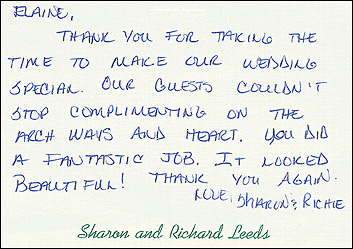 ELAINE,
THANK YOU FOR TAKING THE
TIME TO MAKE OUR WEDDING
SPECIAL. OUR GUESTS COULDN'T
STOP COMPLIMENTING ON THE
ARCH WAYS AND HEART. YOU DID
A FANTASTIC JOB. IT LOOKED
BEAUTIFUL! THANK YOU AGAIN.
LOVE, SHARON & RICHIE
Sharon and Richard Leeds